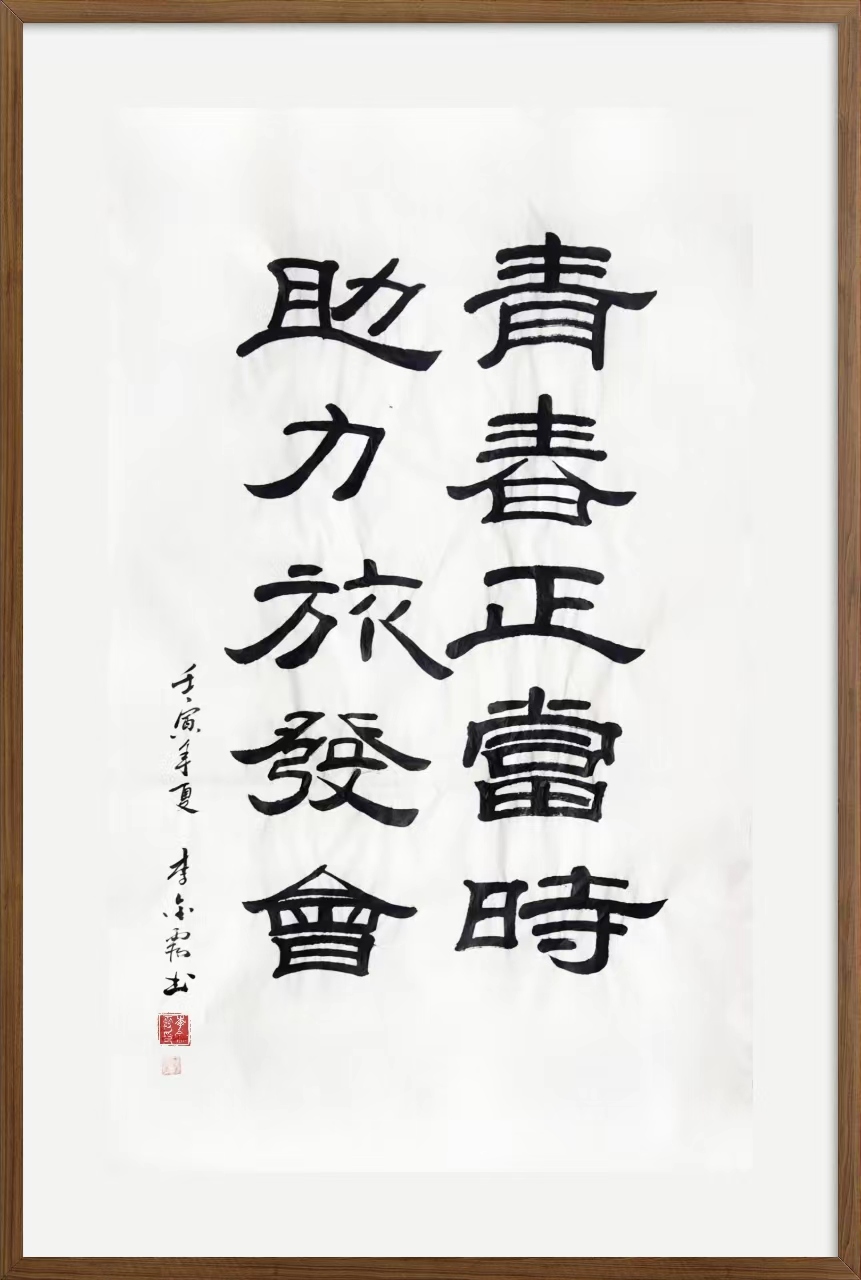 青春正當時
助力旅發會
壬寅年夏 李金霜书